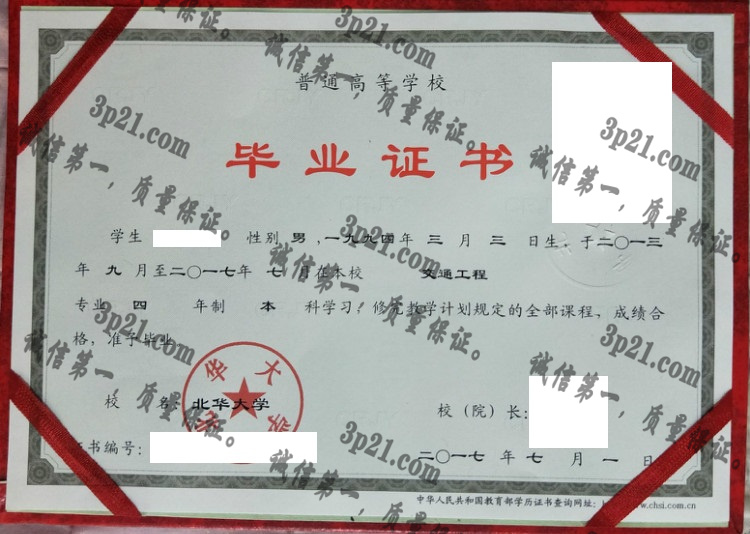 普通高等学校
毕业证书
学生 性别 男,一九九四年 三 月 三 日生,于二〇一三
年 九 月至二〇一七年 七 月在本校 交通工程
专业 四 年制 本 科学习,修完教学计划规定的全部课程,成绩合
格,准予毕业。
华大学
校 名:北华大学
校(院)长:
证书编号:
二〇一七 年 七 月 一 日
中华人民共和国教育部学历证书查询网址:
www.chsi.com.cn
3p21.com
诚信第一,质量保证。
3p21.com
诚信第一,质量保证。
3p21.com
诚信第一,质量保证。
3p21.com
诚信第一,质量保证。
3p21.com
诚信第一,质量保证。
3p21.com
诚信第一,质量保证。
3p21.com
诚信第一,质量保证。
3p21.com
诚信第一